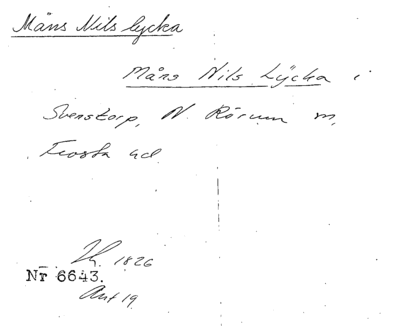 Måns Nils lycka
Måns Nils Lÿcka i
Svenstorp, N. Rörum m,
Frosta hd
1826
Nr 6643.
Ant 19